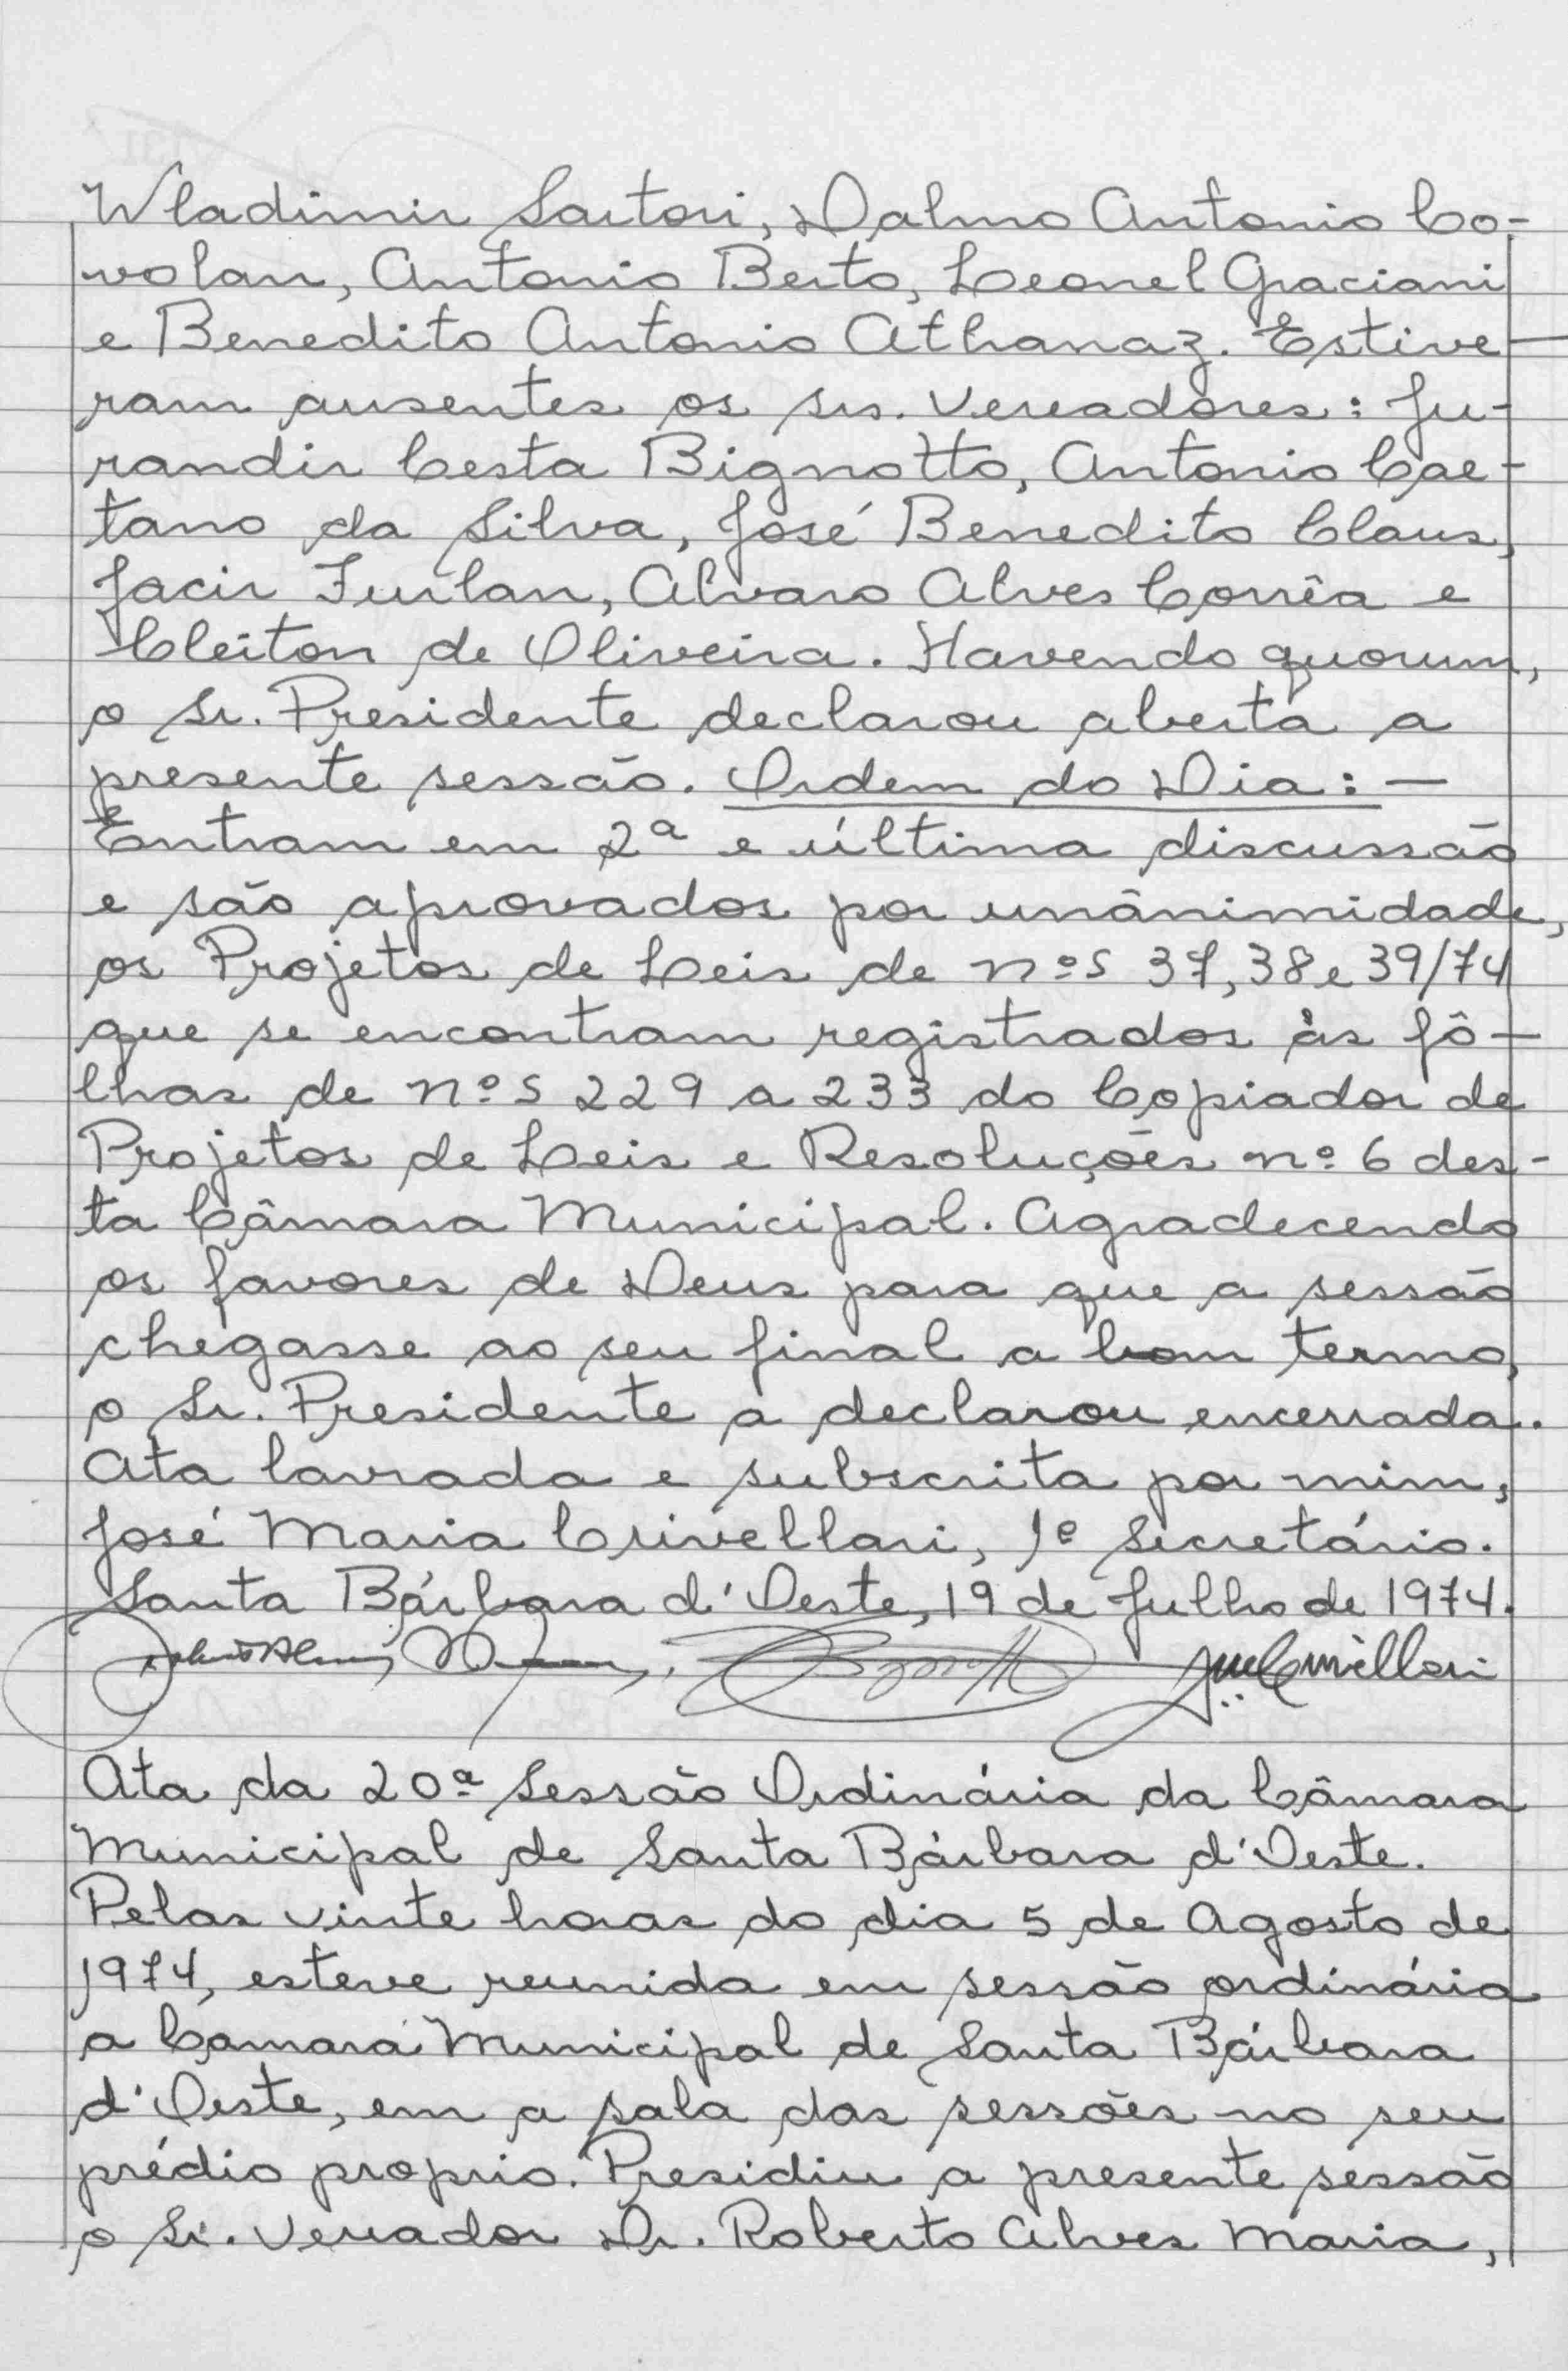 Wladimir Sartori, Dalmo Antonio Co-
volan, Antonio Berto, Leonel Graciani
e Benedito Antonio Athanaz. Estive-
ram ausentes os srs. Vereadores: Ju-
randir Cesta Bignotto, Antonio Cae-
tano da Silva, José Benedito Claus,
Jacir Furlan, Alvaro Alves Corrêa e
Cleiton de Oliveira. Havendo quorum,
o Sr. Presidente declarou aberta a
presente sessão. Ordem do Dia: —
Entram em 2ª e última discussão
e são aprovados por unânimidade,
os Projetos de Leis de nºs 37, 38 e 39/74
que se encontram registrados às fô-
lhas de nºs 229 a 233 do Copiador de
Projetos de Leis e Resoluções nº 6 des-
ta Câmara Municipal. Agradecendo
os favores de Deus para que a sessão
chegasse ao seu final a bom termo,
o Sr. Presidente a declarou encerrada.
Ata lavrada e subscrita por mim,
José Maria Crivellari, 1º Secretário.
Santa Bárbara d'Oeste, 19 de Julho de 1974.
Ata da 20ª Sessão Ordinária da Câmara
Municipal de Santa Bárbara d'Oeste.
Pelas vinte horas do dia 5 de Agosto de
1974, esteve reunida em sessão ordinária
a Camara Municipal de Santa Bárbara
d'Oeste, em a sala das sessões no seu
prédio proprio. Presidiu a presente sessão
o Sr. Vereador Dr. Roberto Alves Maria,